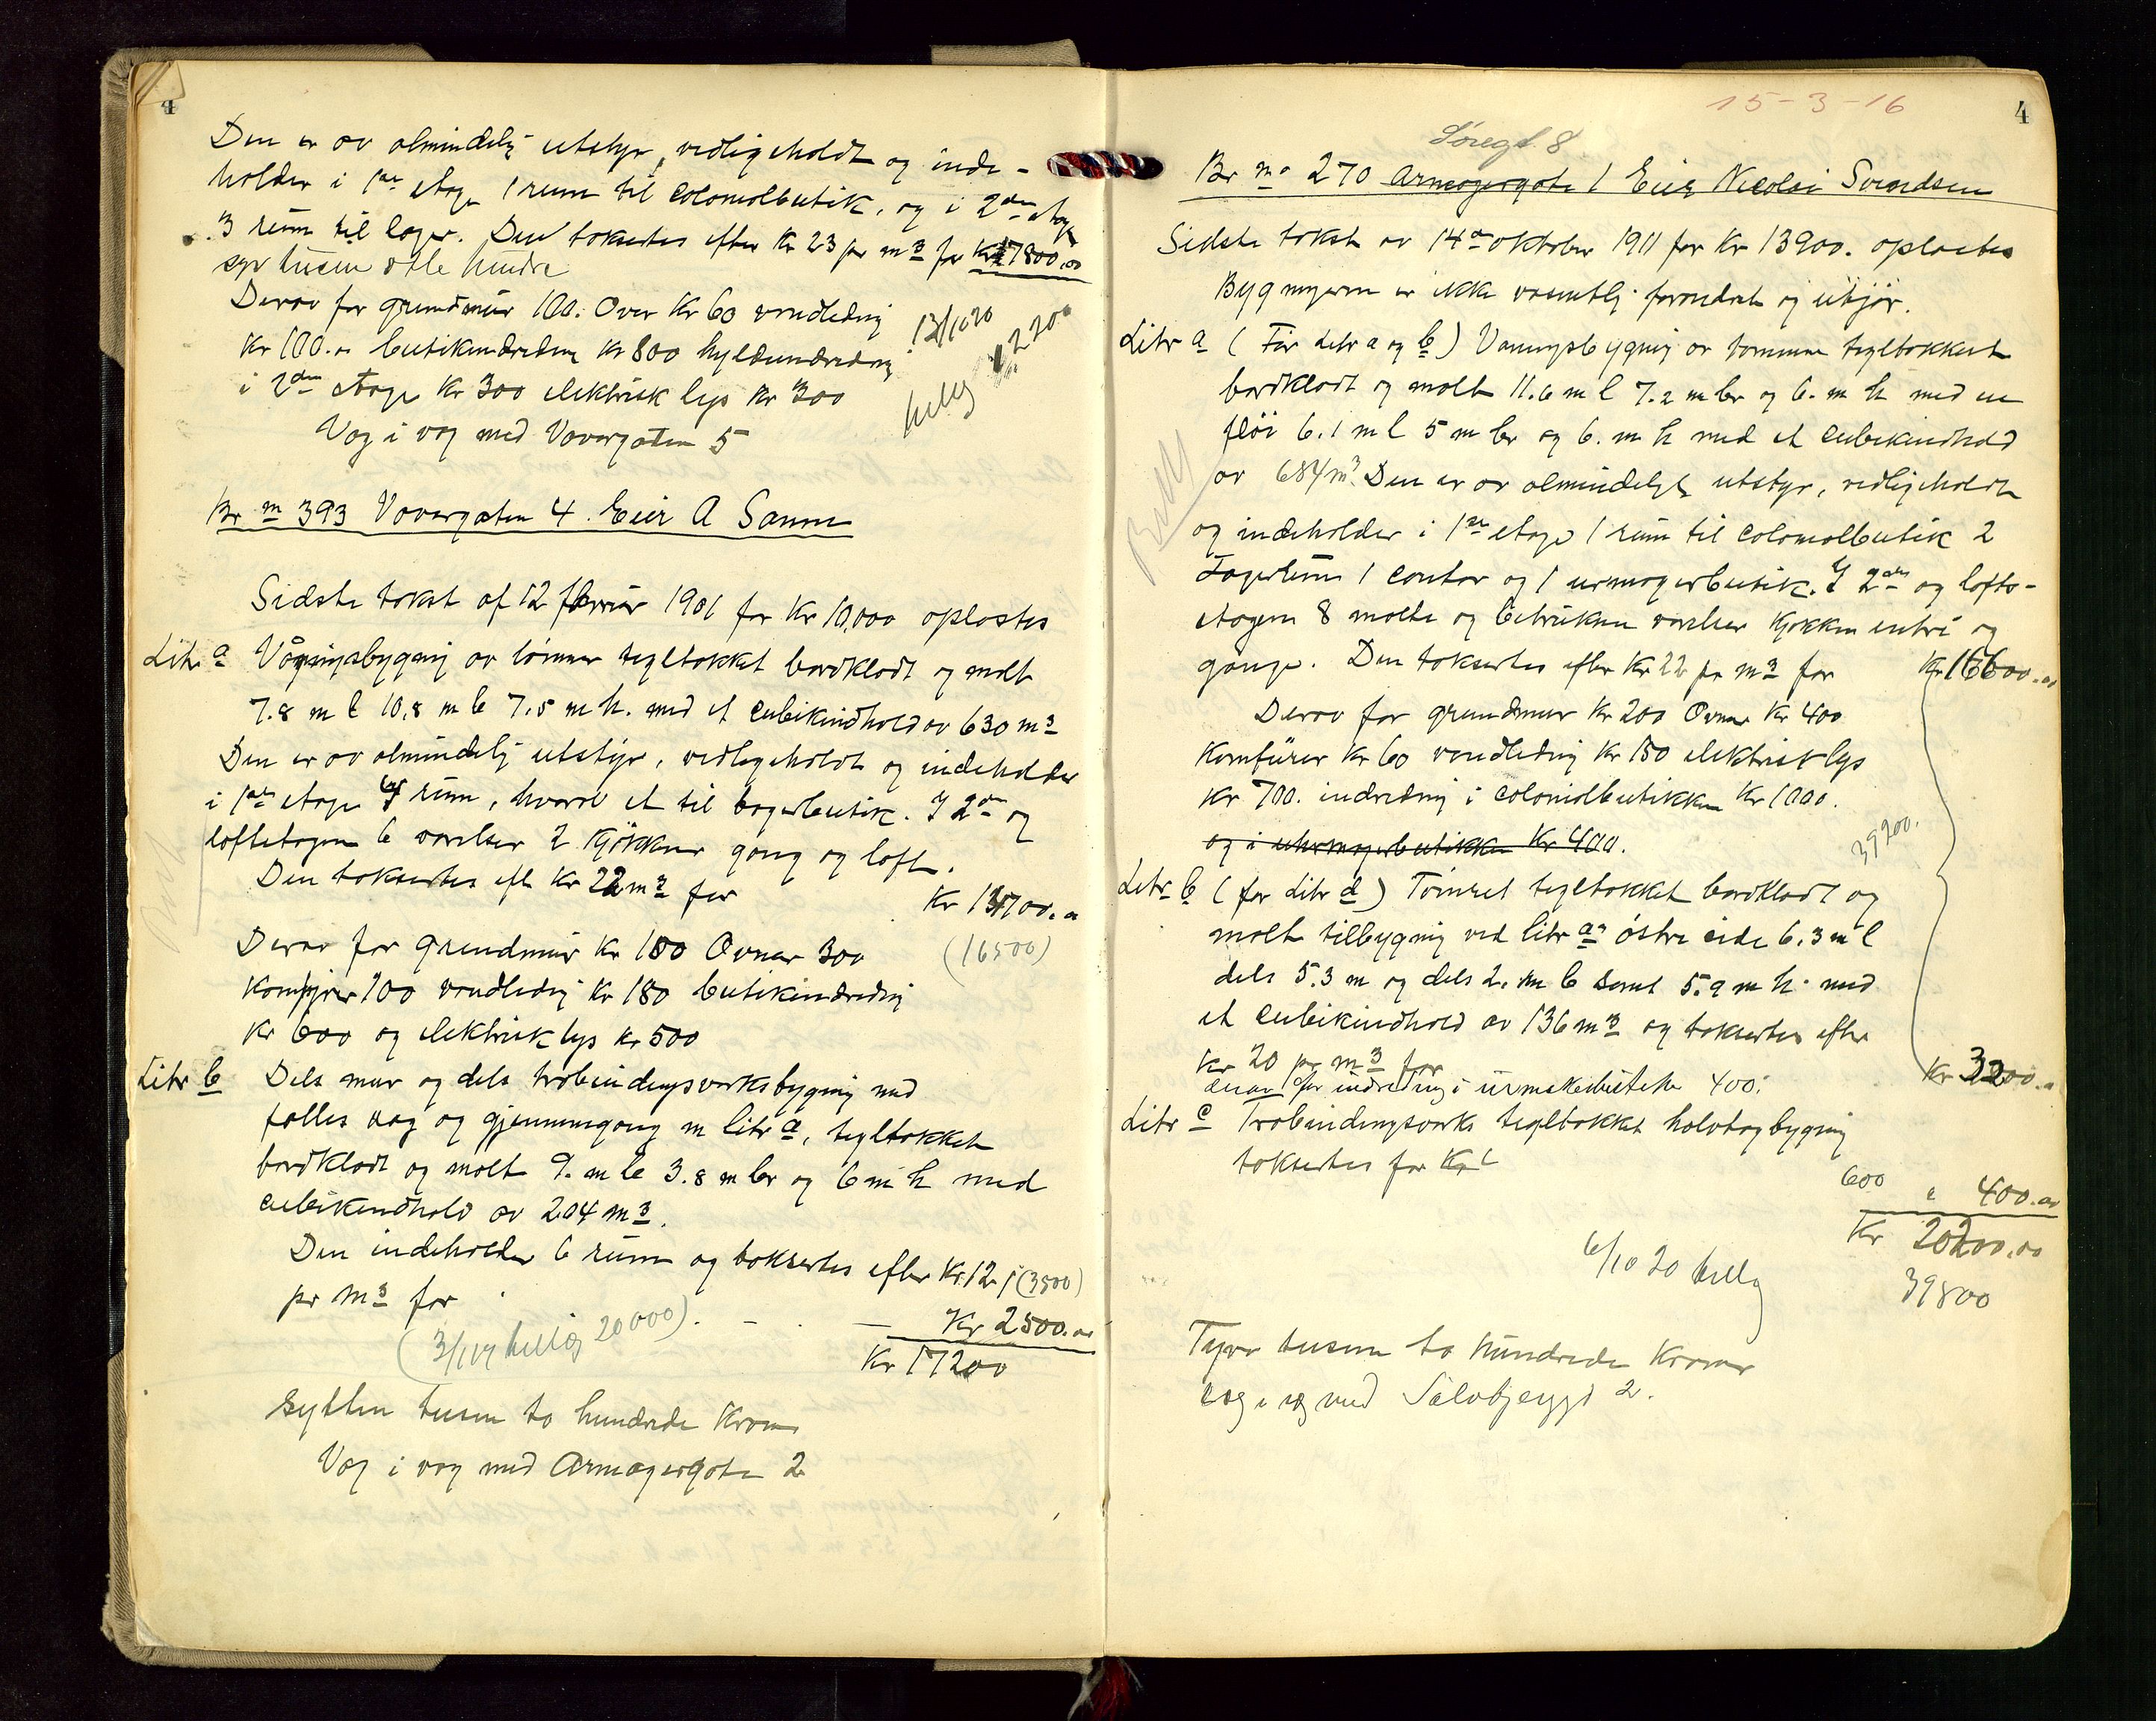 4
Den er av almindelig utstyr, vedligeholdt og inde-
holder i 1ste etage 1 rum til colonialbutik, og i 2den etage
3 rum til lager. Den taksertes efter Kr 23 pr m3 for Kr 17800.00
syv tusen otte hundre
Derav for grundmur 100. Over Kr 60 vandledning
Kr 100.00 butikindredning Kr 800 hyldeindredning
i 2den etage Kr 300 elektrisk lys Kr 300
13/10 20
Væg i væg med Vaavergaten 5
Br no 393 Vaavergaten 4. Eier A Sanne
Sidste takst af 12 februar 1901 for Kr 10,000 oplæstes
Litr a Våningsbygning av tømmer tegltækket bordklædt og malt
7.8 m l 10,8 m b 7.5 m h. med et cubikindhold av 630 m3
Den er av almindelig utstyr, vedligeholdt og indeholder
i 1ste etage 4 rum, hvorav et til bagerbutik. I 2den og
loftetagen 6 værelser 2 kjøkkener gang og loft.
Den taksertes eft Kr 22 m3 for
Kr 14700.00
Derav for grundmur Kr 150 Ovner 300
(16500)
Komfyrer 100 vandledning Kr 150 butikindredning
Kr 600 og elektrisk lys Kr 500
Litr b Dels mur og dels trebindingsverksbygning med
fælles væg og gjennemgang m litr a, tegltækket
bordklædt og malt 9. m l 3.8 m br og 6 m h med
cubikindhold av 204 m3.
Den indeholder 6 rum og taksertes efter Kr. 12 (3500)
pr m3 for
Kr 2500.00
(3/1 17 billig 20000)
Kr 17200
Sytten tusen to hundrede Kroner
Væg i væg med Armagergate 2
15-3-16
4
Søregt 8
Br no 270 Armagergate 1 Eier Nicolai Svendsen
Sidste takst av 14de oktober 1911 for Kr 13900. oplæstes
Bygningerne er ikke væsentlig forandret og utgjør.
Litr a (Før Litr a og b) Vaaningsbygning av tømmer tegltækket
bordklædt og malt 11.6 m l 7.2 m br og 6. m h med en
fløi 6.1 m l 5 m br og 6. m h med et cubikindhold
av 684 m3. Den er av almindeligt utstyr, vedligeholdt
Billig
og indeholder i 1ste etage 1 rum til colonialbutik 2
Lagerrum 1 contor og 1 urmagerbutik. I 2den og lofts-
etagen 8 malte og betrukne værelser kjøkken entré og
gange. Den taksertes efter Kr 22 pr m3 for
Kr 16600.00
Derav for grundmur Kr 200 Ovner Kr 400
Komfürer Kr 60 vandledning Kr 150 elektrisk lys
Kr 700. indredning i colonialbutikken Kr 1000.
og i uhrmagerbutikken Kr 400.
39200.
Litr b (før Litr d) Tømret tegltækket bordklædt og
malt tilbygning ved litr a's østre side 6.3 m l
dels 5.3 m og dels 2. m b samt 5.9 m h. med
et cubikindhold av 136 m3 og taksertes efter
Kr 20 pr m3 for
Kr 3200.00
derav for indredning i urmakerbutik 400.
Litr c Trebindingsverks tegltækket halvtagbygning
taksertes for Kr
600 " 400.00
Kr 20200.00
6/10 20 billig
39800
Tyve tusen to hundrede Kroner
væg i væg med Sølvbjerggt 2.